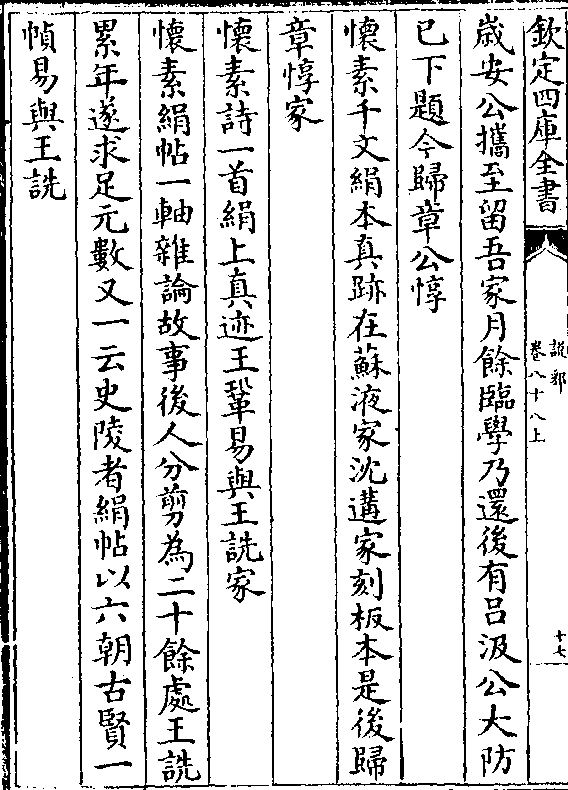 欽定四庫全書
說郛
卷八十八上
十七
歲安公攜至留吾家月餘臨學乃還後有吕汲公大防
已下題今歸章公惇
懷素千文絹本真跡在蘇液家沈遘家刻板本是後歸
章惇家
懷素詩一首絹上真迹王鞏易與王詵家
懷素絹帖一軸雜論故事後人分剪為二十餘處王詵
累年遂求足元數又一云史陵者絹帖以六朝古賢一
幀易與王詵